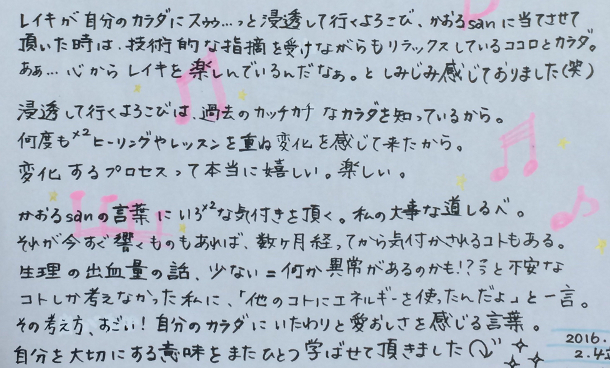 レイキが自分のカラダにスゥゥ…っと浸透して行くよろこび、かおるsanに当てさせて
頂いた時は、技術的な指摘を受けながらもリラックスしているココロとカラダ。
あぁ…心からレイキを楽しんでいるんだなぁ。としみじみ感じておりました(笑)
浸透して行くよろこびは、過去のカッチカチなカラダを知っているから。
何度も×2ヒーリングやレッスンを重ね変化を感じて来たから。
変化するプロセスって本当に嬉しい。楽しい。
かおるsanの言葉にいろ×2な気付きを頂く。私の大事な道しるべ。
それが今すぐ響くものもあれば、数ヶ月経ってから気付かされるコトもある。
生理の出血量の話、少ない=何か異常があるのかも!?と不安な
コトしか考えなかった私に、「他のコトにエネルギーを使ったんだよ」と一言。
その考え方、すごい!自分のカラダにいたわりと愛おしさを感じる言葉。
自分を大切にする意味をまたひとつ学ばせて頂きました
2016.
2.4